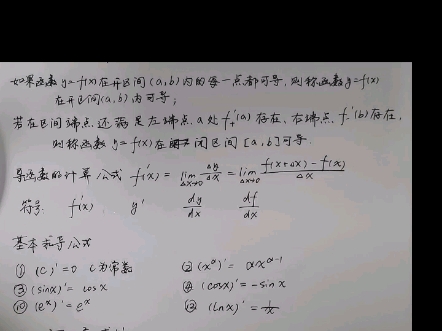 如果函数 y=f(x) 在开区间 (a,b) 内的每一点都可导, 则称函数 y=f(x)
在开区间 (a,b) 内可导;
若在区间端点还满足左端点 a 处 f₊'(a) 存在、右端点 f₋'(b) 存在,
则称函数 y=f(x) 在闭区间 [a,b] 可导.
导函数的计算公式 f'(x) = lim_{Δx→0} Δy/Δx = lim_{Δx→0} (f(x+Δx)-f(x))/Δx
符号: f'(x) y' dy/dx df/dx
基本求导公式
① (C)'=0 C为常数 ② (x^α)'= αx^{α-1}
③ (sinx)'= cosx ④ (cosx)'= -sinx
⑩ (e^x)'= e^x ⑫ (lnx)'= 1/x